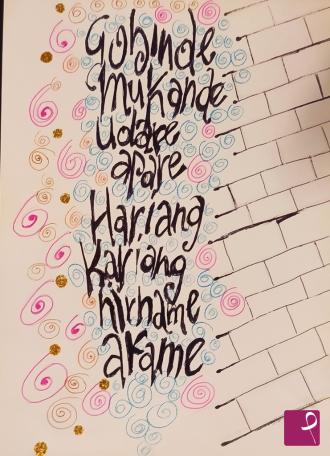 Gobinde
mukande
udaree
apare
Hariang
Kariang
nirname
akame